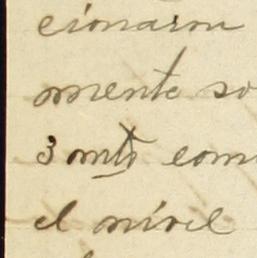 cionaron
mente so
3 mts com
el nivel